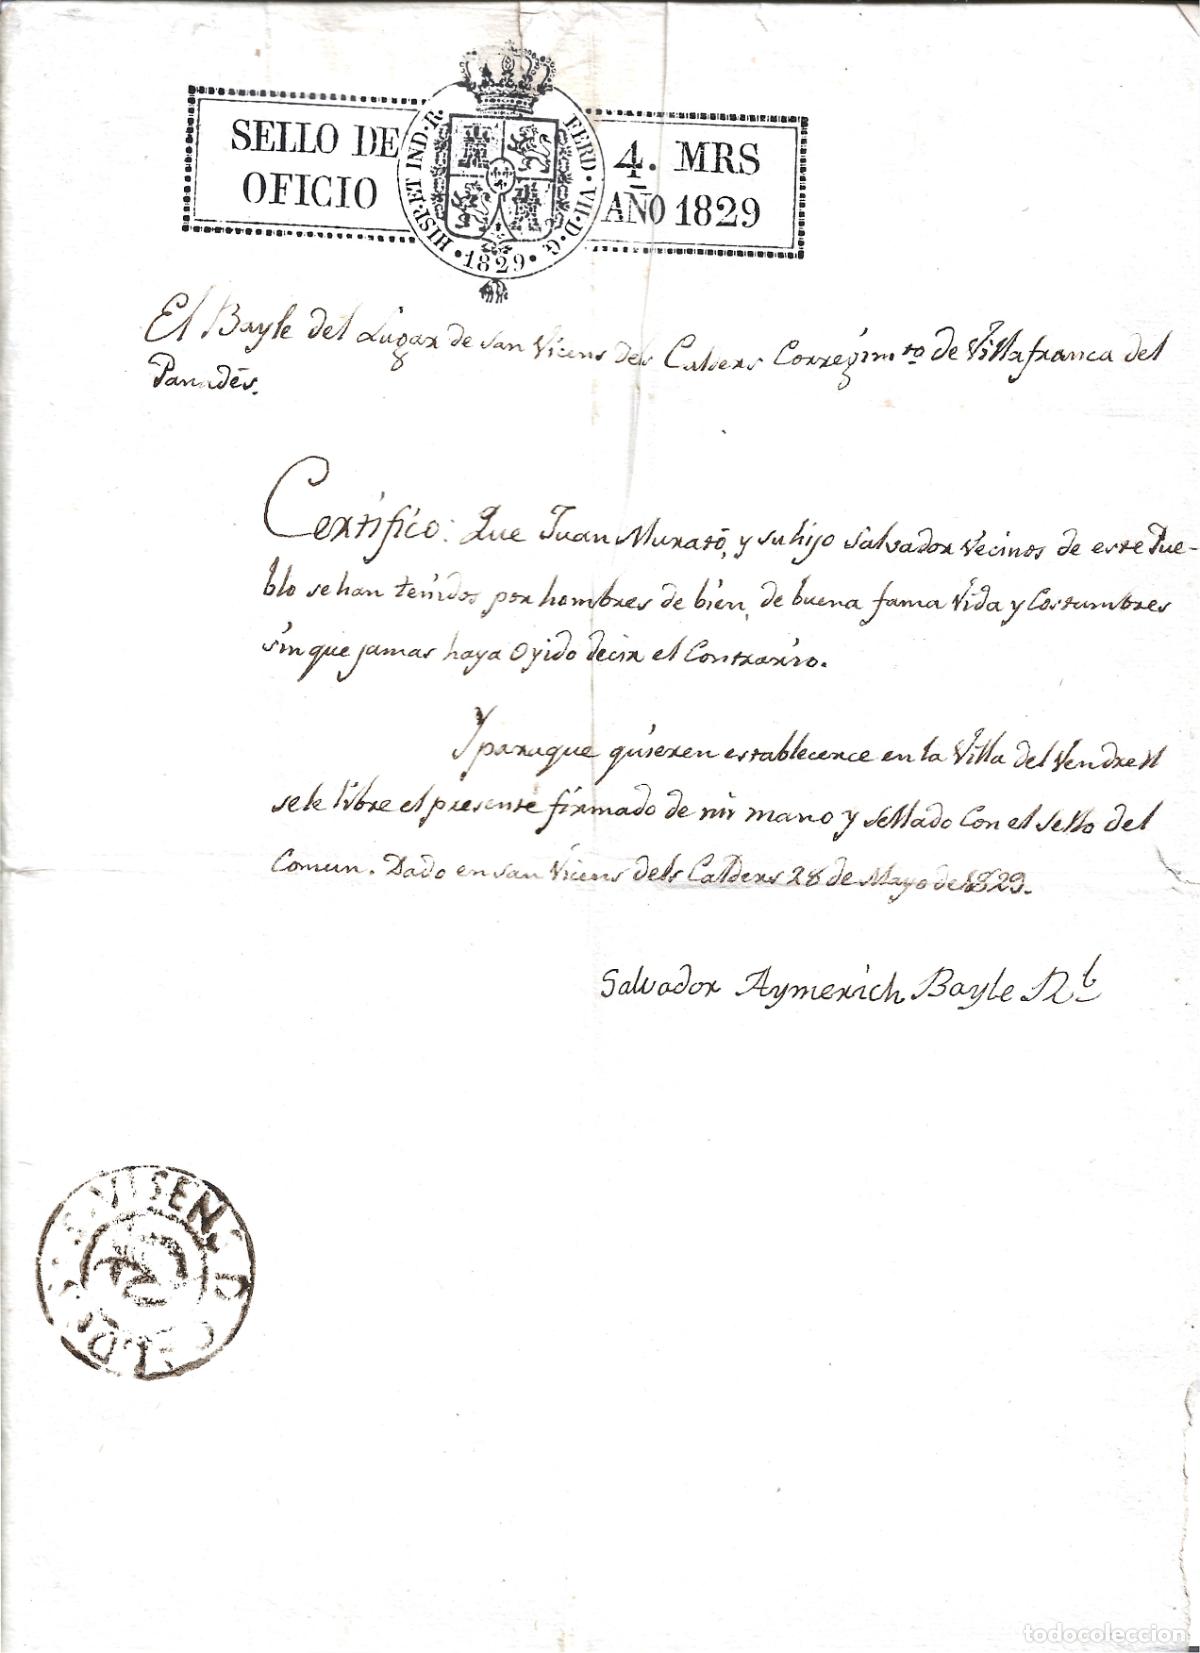 SELLO DE
OFICIO
HISP·ET IND·R.
FERD·VII·D·G·
·1829·
4. MRS
AÑO 1829
El Bayle del Lugar de San Vicens dels Calders Corregim.to de Villafranca del
Panadés.
Certifico: Que Juan Murató, y su hijo Salvador Vecinos de este Pue-
blo se han tenidos por hombres de bien, de buena fama Vida y Costumbres
sin que jamas haya Oyido decir el Contrario.
Y paraque quieren establecerce en la Villa del Vendrell
se le libre el presente firmado de mi mano y sellado Con el sello del
Comun. Dado en San Vicens dels Calders 28 de Mayo de 1829.
Salvador Aymerich Bayle R.l
S. VISENS D CALDRS
todocoleccion